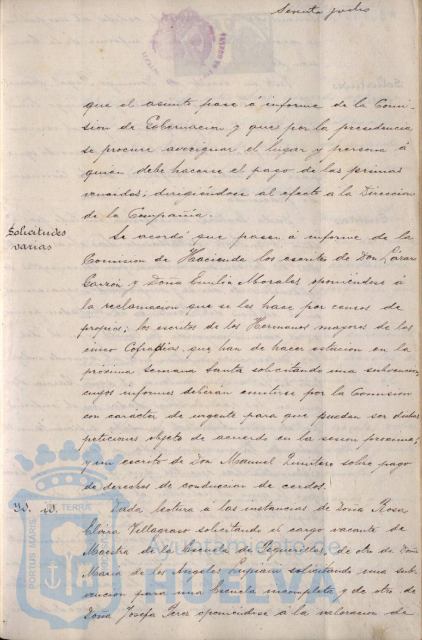 Sesenta y ocho
que el asunto pase á informe de la Comi-
sion de Gobernacion y que por la presidencia
se procure averiguar el lugar y persona á
quien debe hacerse el pago de las primas
vencidas, dirigiéndose al efecto á la Direccion
de la Compañia.
Solicitudes
varias
Se acordó que pasen á informe de la
Comision de Hacienda los escritos de Don
Garzón y Doña Emilia Morales oponiéndose á
la reclamacion que se les hace por censos de
propios; los escritos de los Hermanos mayores de las
cinco Cofradias que han de hacer estacion en la
próxima Semana Santa solicitando una subvencion,
cuyos informes deberán emitirse por la Comision
con carácter de urgente para que puedan ser dichas
peticiones objeto de acuerdo en la sesion proxima;
y un escrito de Don Manuel Quintero sobre pago
de derechos de conduccion de cerdos.
Yd. id.
Dada lectura á las instancias de Doña Rosa
Elvira Villagraso solicitando el cargo vacante de
Maestra de la Escuela de de otra de Doña
Maria de los Angeles solicitando una sub-
vencion para una Escuela incompleta y de otra de
Doña Josefa Perez oponiendose á la valoracion de
PORTUS MARIS
TERRÆ
Ayuntamiento de
HUELVA